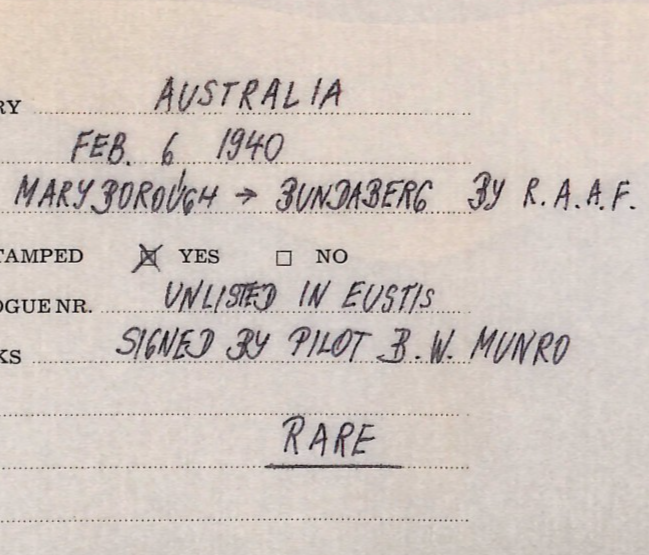 RY AUSTRALIA
FEB. 6 1940
MARYBOROUGH → BUNDABERG BY R.A.A.F.
TAMPED ☒ YES ☐ NO
OGUE NR. UNLISTED IN EUSTIS
KS SIGNED BY PILOT B.W. MUNRO
RARE